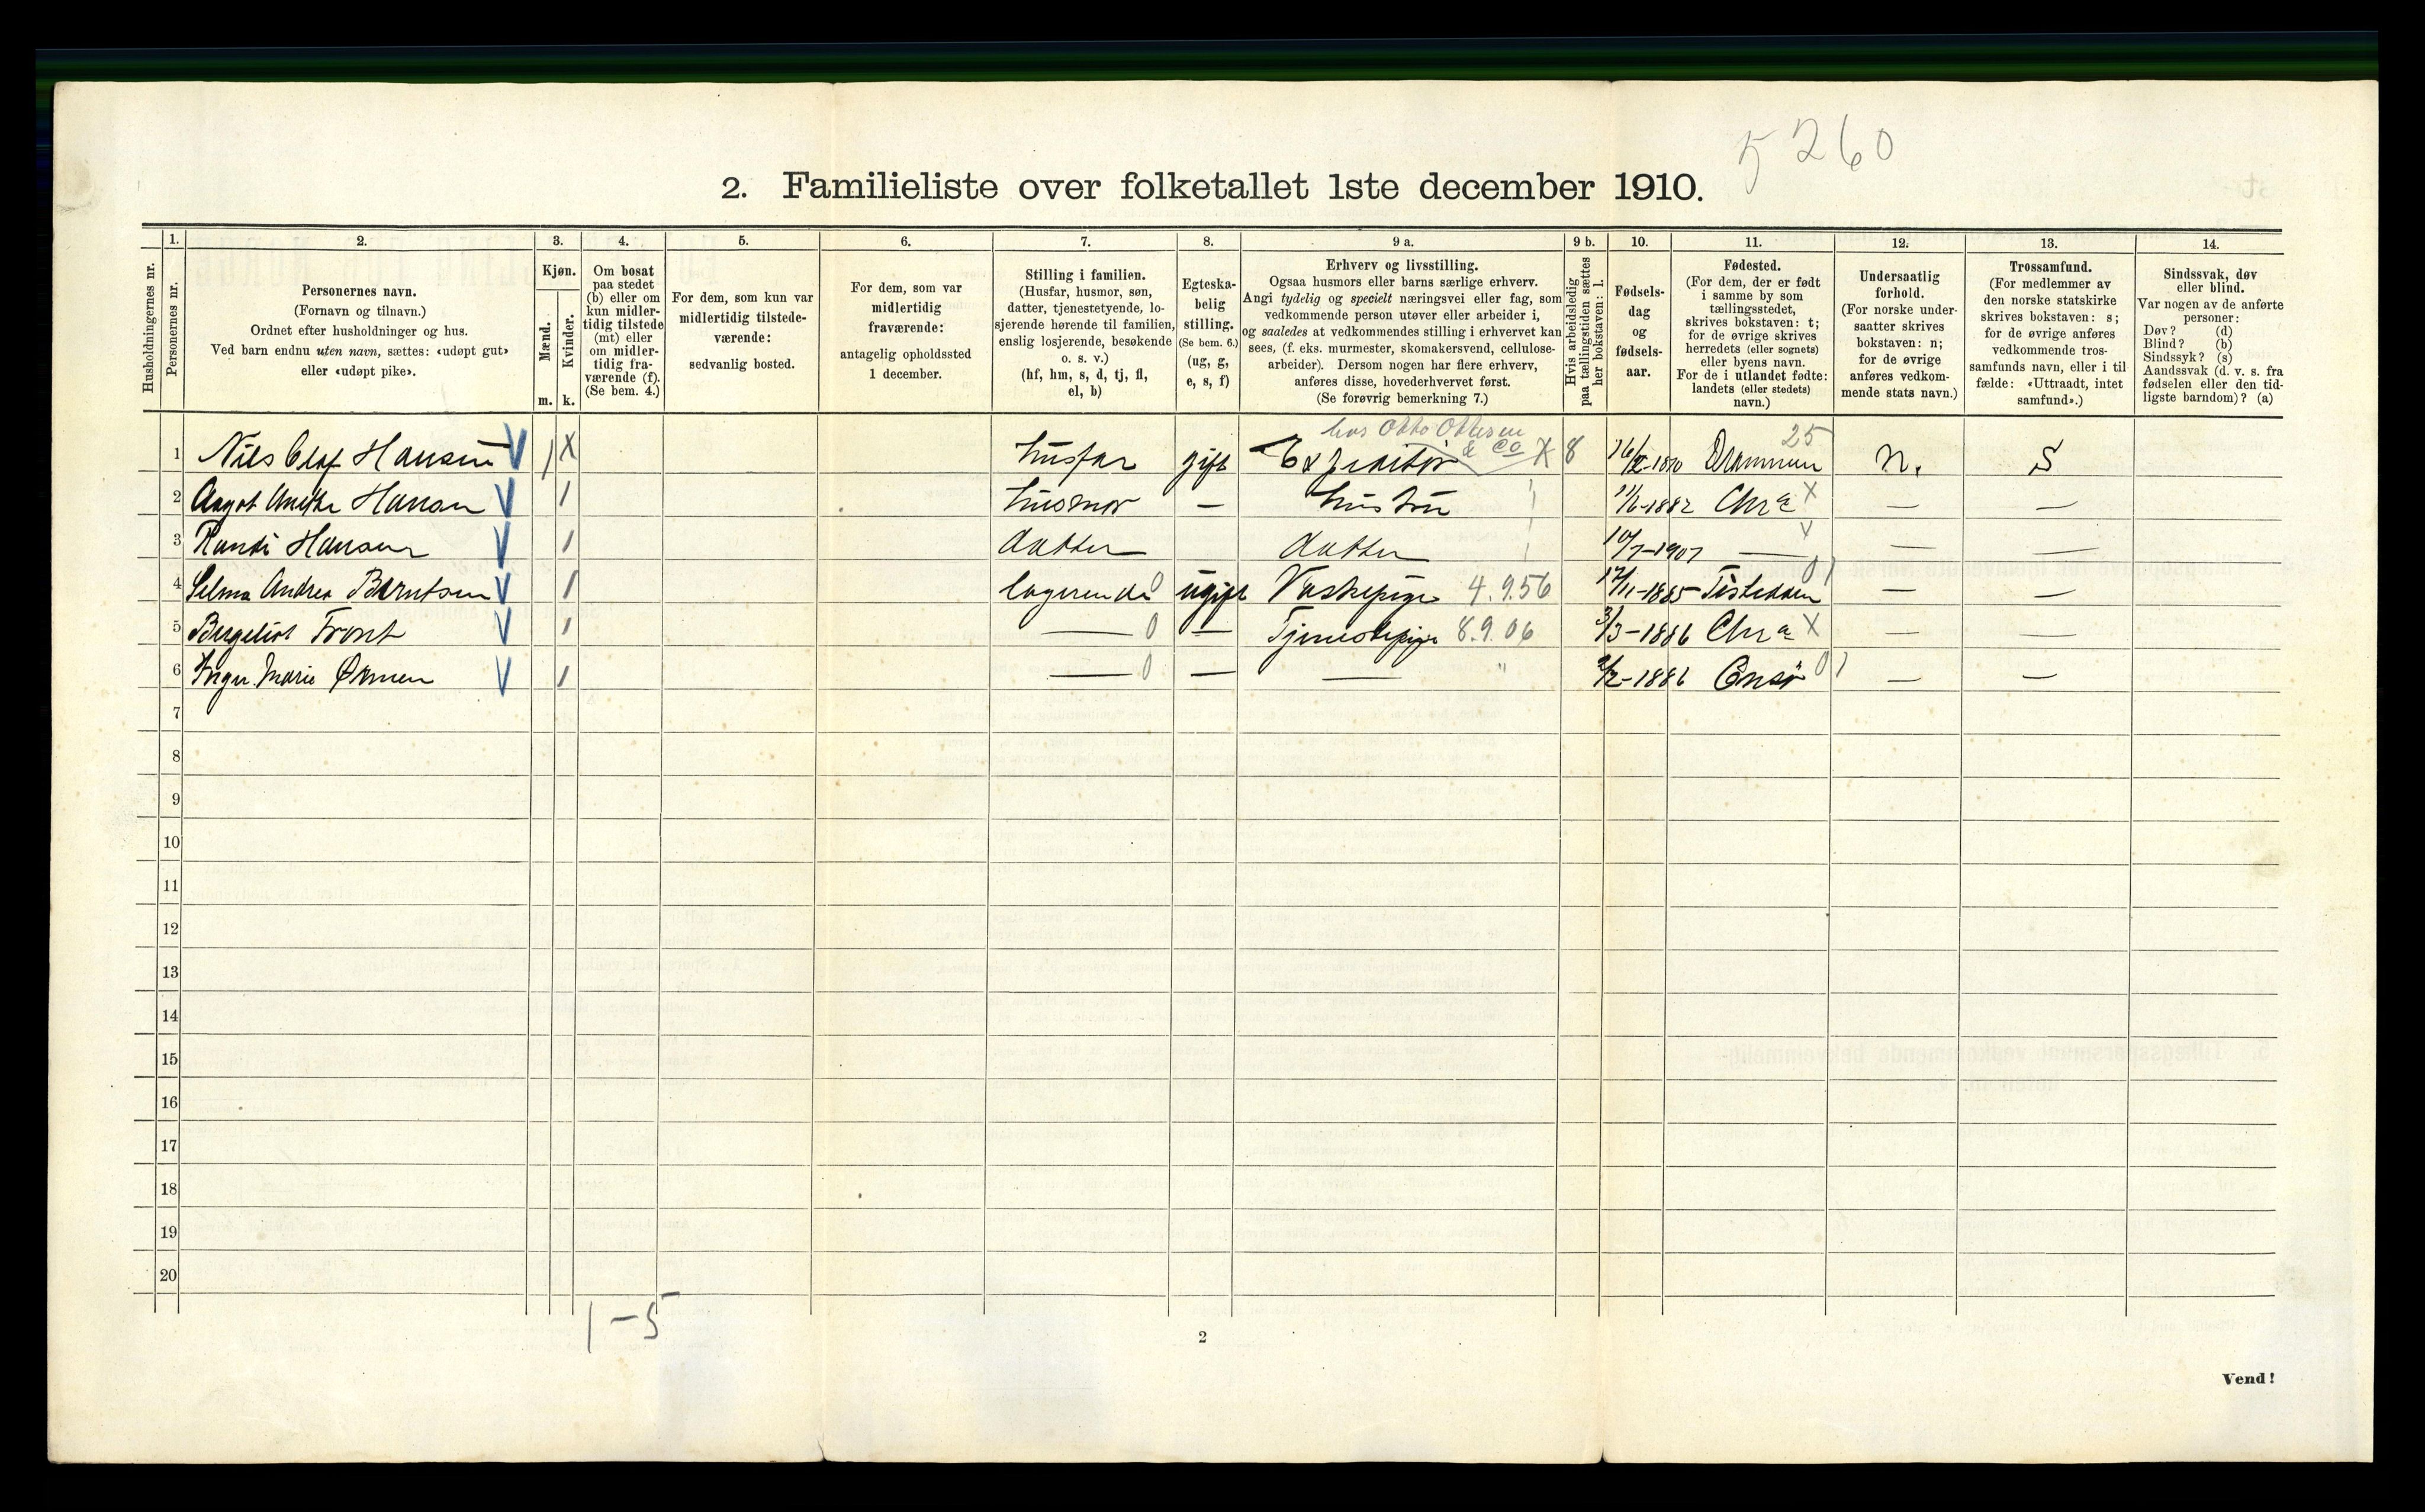 5260
2. Familieliste over folketallet 1ste december 1910.
1. 2. 3. 4. 5. 6. 7. 8. 9 a. 9 b. 10. 11. 12. 13. 14.
Husholdningernes nr.
Personernes nr.
Personernes navn.
(Fornavn og tilnavn.)
Ordnet efter husholdninger og hus.
Ved barn endnu uten navn, sættes: «udøpt gut»
eller «udøpt pike».
Kjøn.
Mænd.
Kvinder.
m. k.
Om bosat
paa stedet
(b) eller om
kun midler-
tidig tilstede
(mt) eller
om midler-
tidig fra-
værende (f).
(Se bem. 4.)
For dem, som kun var
midlertidig tilstede-
værende:
sedvanlig bosted.
For dem, som var
midlertidig
fraværende:
antagelig opholdssted
1 december.
Stilling i familien.
(Husfar, husmor, søn,
datter, tjenestetyende, lo-
sjerende hørende til familien,
enslig losjerende, besøkende
o. s. v.)
(hf, hm, s, d, tj, fl,
el, b)
Egteska-
belig
stilling.
(Se bem. 6.)
(ug, g,
e, s, f)
Erhverv og livsstilling.
Ogsaa husmors eller barns særlige erhverv.
Angi tydelig og specielt næringsvei eller fag, som
vedkommende person utøver eller arbeider i,
og saaledes at vedkommendes stilling i erhvervet kan
sees, (f. eks. murmester, skomakersvend, cellulose-
arbeider). Dersom nogen har flere erhverv,
anføres disse, hovederhvervet først.
(Se forøvrig bemerkning 7.)
Hvis arbeidsledig
paa tællingstiden sættes
her bokstaven: l.
Fødsels-
dag
og
fødsels-
aar.
Fødested.
(For dem, der er født
i samme by som
tællingsstedet,
skrives bokstaven: t;
for de øvrige skrives
herredets (eller sognets)
eller byens navn.
For de i utlandet fødte:
landets (eller stedets)
navn.)
Undersaatlig
forhold.
(For norske under-
saatter skrives
bokstaven: n;
for de øvrige
anføres vedkom-
mende stats navn.)
Trossamfund.
(For medlemmer av
den norske statskirke
skrives bokstaven: s;
for de øvrige anføres
vedkommende tros-
samfunds navn, eller i til
fælde: «Uttraadt, intet
samfund».)
Sindssvak, døv
eller blind.
Var nogen av de anførte
personer:
Døv? (d)
Blind? (b)
Sindssyk? (s)
Aandssvak (d. v. s. fra
fødselen eller den tid-
ligste barndom)? (a)
hos Otto Ottesen & Co 25
1 Nils Olaf Hansen V 1 X husfar gift Expeditør X 8 Drammen n. S
2 Aagot Anethe Hansen V 1 husmor — hustru 11/6-1882 Chr a X — —
3 Randi Hansen V 1 datter datter 10/7-1907 — X — —
4 Selma Andrea Berntsen V 1 logerende 0 ugift Vaskepige 4.9.56 17/11-1885 Tistedalen 01 — —
5 Bergliot Front V 1 — 0 — Tjenestepige 8.9.06 3/3-1886 Chr a X — —
6 Inger Marie V 1 — 0 — — " 2/2-1886 Onsø 01 — —
7
8
9
10
11
12
13
14
15
16
17
18
19
20
1-5
2
Vend!